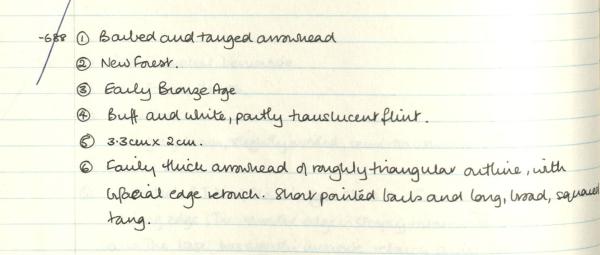 -688 ① Barbed and tanged arrowhead
② New Forest.
③ Early Bronze Age
④ Buff and white, partly translucent flint.
⑤ 3.3cm x 2cm.
⑥ Fairly thick arrowhead of roughly triangular outline, with
bifacial edge retouch. Short pointed barbs and long, broad, squared
tang.